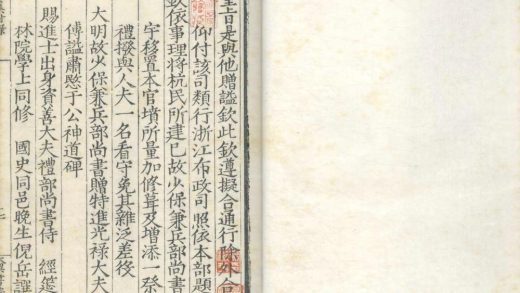 旨是與他贈諡欽此欽遵擬合通行除外合
仰付該司類行浙江布政司照依本部題
欽依事理將杭民所建已故少保兼兵部尚書
宇移置本官墳所量加修葺及增添一祭
禮撥與人夫一名看守免其雜泛差役
大明故少保兼兵部尚書贈特進光祿大夫
傅諡肅愍于公神道碑
賜進士出身資善大夫禮部尚書侍 經筵
林院學士同修 國史同邑晚生倪岳譔